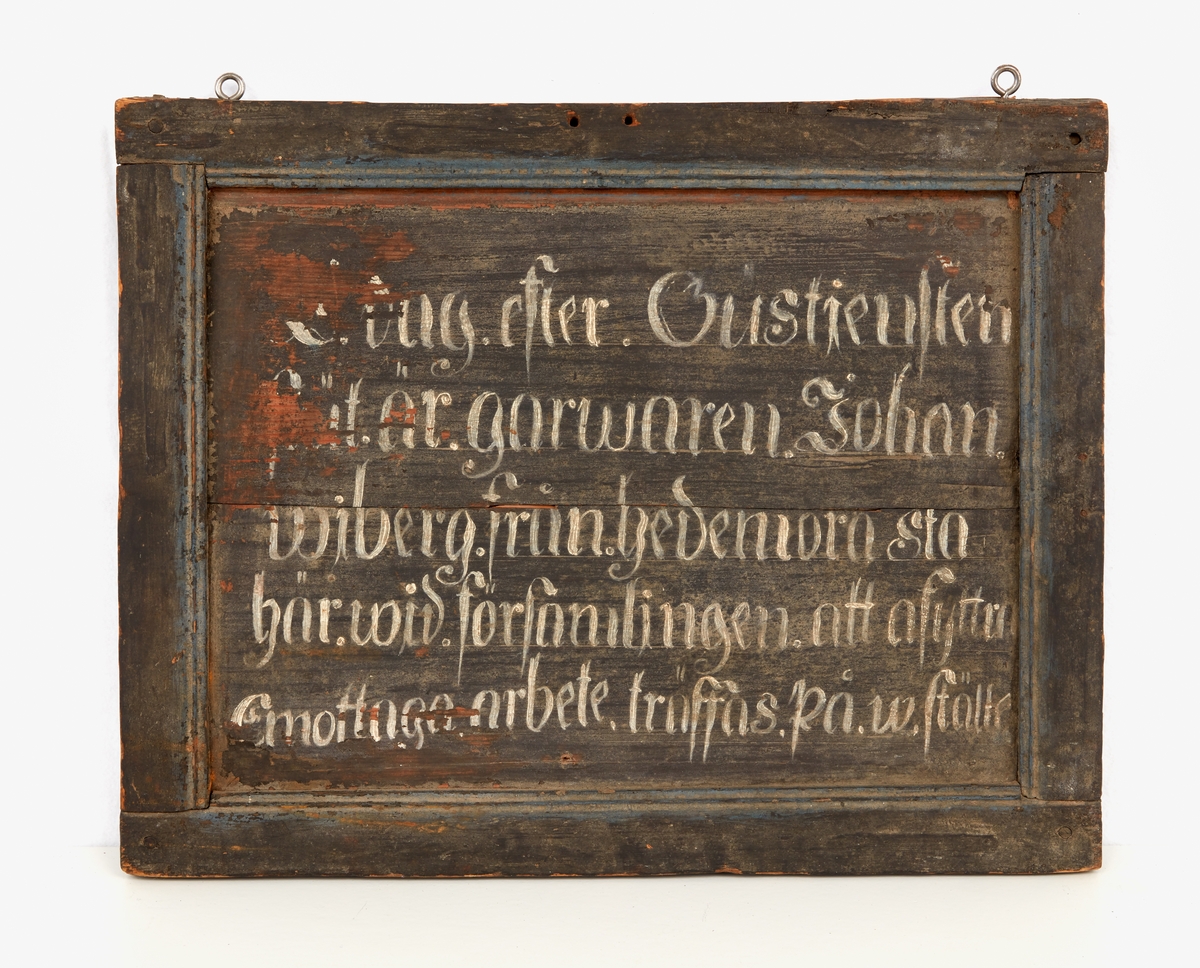 efter. Gustjensten
är. garwaren. Johan.
wiberg. från. hedemora sta
här. wid. församlingen. att afyttra
Emottaga. arbete. träffas. på. w. stälte